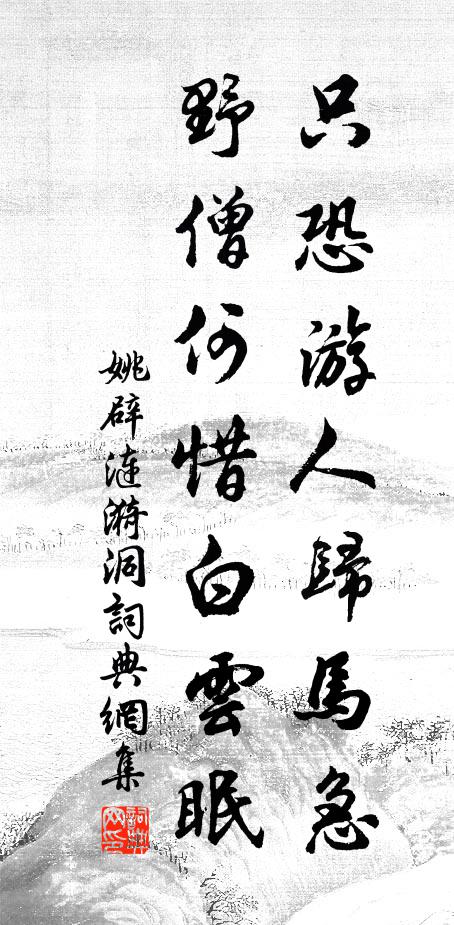 只恐游人歸馬急
野僧何惜白雲眠
姚辟漣漪洞詞典網集